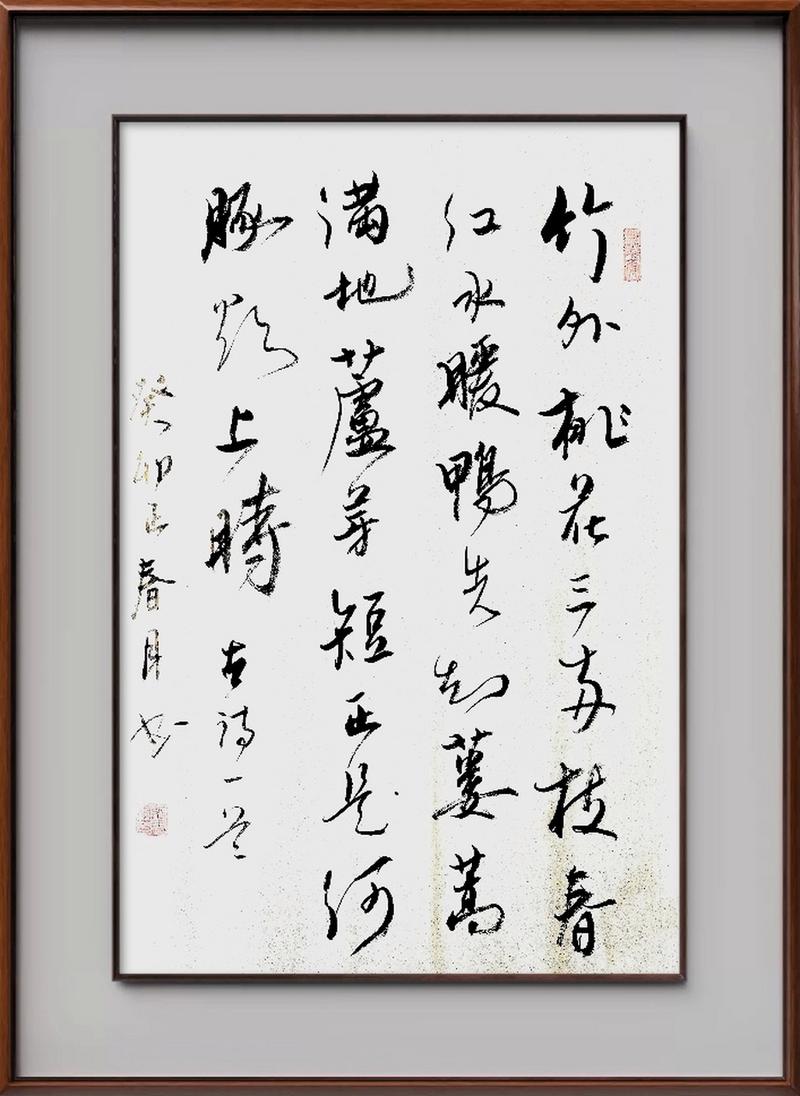 竹外桃花三两枝春
江水暖鴨先知蔞蒿
滿地蘆芽短正是河
豚欲上時 古诗一首
癸卯正春月书